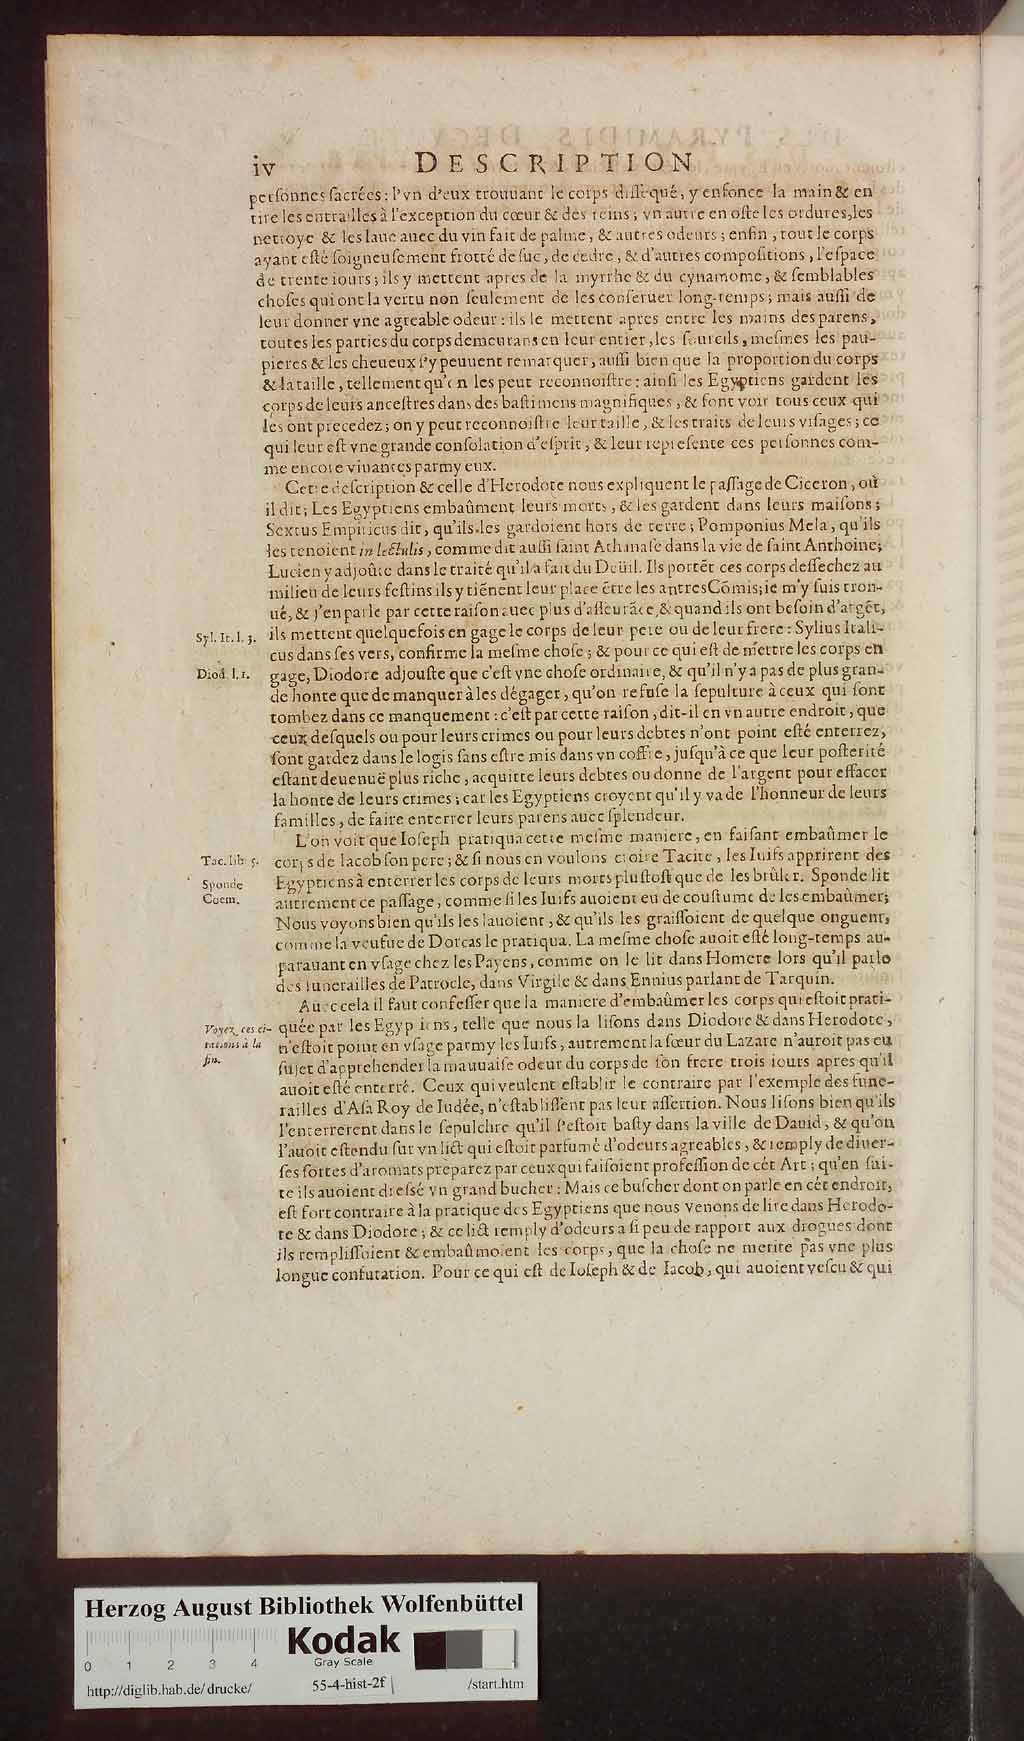 iv DESCRIPTION
perſonnes ſacrées: l'vn d'eux trouuant le corps diſſequé, y enfonce la main & en
tire les entrailles à l'exception du cœur & des reins; vn autre en oſte les ordures, les
nettoye & les laue auec du vin fait de palme, & autres odeurs; enfin, tout le corps
ayant eſté ſoigneuſement frotté de ſuc, de cedre, & d'autres compoſitions, l'eſpace
de trente iours; ils y mettent apres de la myrrhe & du cynamome, & ſemblables
choſes qui ont la vertu non ſeulement de les conſeruer long-temps; mais auſſi de
leur donner vne agreable odeur: ils le mettent apres entre les mains des parens,
toutes les parties du corps demeurans en leur entier, les ſourcils, meſmes les pau-
pieres & les cheueux ſ'y peuuent remarquer, auſſi bien que la proportion du corps
& la taille, tellement qu'on les peut reconnoiſtre: ainſi les Egyptiens gardent les
corps de leurs anceſtres dans des baſtimens magnifiques, & font voir tous ceux qui
les ont precedez; on y peut reconnoiſtre leur taille, & les traits de leurs viſages; ce
qui leur eſt vne grande conſolation d'eſprit, & leur repreſente ces perſonnes com-
me encore viuantes parmy eux.
Cette deſcription & celle d'Herodote nous expliquent le paſſage de Ciceron, où
il dit; Les Egyptiens embaûment leurs morts, & les gardent dans leurs maiſons;
Sextus Empiricus dit, qu'ils les gardoient hors de terre; Pomponius Mela, qu'ils
les tenoient in lectulis, comme dit auſſi ſaint Athanaſe dans la vie de ſaint Anthoine;
Lucien y adjoûte dans le traité qu'il a fait du Deüil. Ils portēt ces corps deſſechez au
milieu de leurs feſtins ils y tiēnent leur place ētre les antres Cōmis; ie m'y ſuis trou-
ué, & j'en parle par cette raiſon auec plus d'aſſeurāce, & quand ils ont beſoin d'argēt,
Syl. It. l. 3. ils mettent quelquefois en gage le corps de leur pere ou de leur frere: Sylius Itali-
cus dans ſes vers, confirme la meſme choſe; & pour ce qui eſt de mettre les corps en
Diod. l. 1. gage, Diodore adjouſte que c'eſt vne choſe ordinaire, & qu'il n'y a pas de plus gran-
de honte que de manquer à les dégager, qu'on refuſe la ſepulture à ceux qui ſont
tombez dans ce manquement: c'eſt par cette raiſon, dit-il en vn autre endroit, que
ceux deſquels ou pour leurs crimes ou pour leurs debtes n'ont point eſté enterrez,
ſont gardez dans le logis ſans eſtre mis dans vn coffre, juſqu'à ce que leur poſterité
eſtant deuenuë plus riche, acquitte leurs debtes ou donne de l'argent pour effacer
la honte de leurs crimes; car les Egyptiens croyent qu'il y va de l'honneur de leurs
familles, de faire enterrer leurs parens auec ſplendeur.
L'on voit que Ioſeph pratiqua cette meſme maniere, en faiſant embaûmer le
Tac. lib. 5. corps de Iacob ſon pere; & ſi nous en voulons croire Tacite, les Iuifs apprirent des
Sponde Egyptiens à enterrer les corps de leurs morts pluſtoſt que de les brûler. Sponde lit
Coem. autrement ce paſſage, comme ſi les Iuifs auoient eu de couſtume de les embaûmer;
Nous voyons bien qu'ils les lauoient, & qu'ils les graiſſoient de quelque onguent,
comme la veufue de Dorcas le pratiqua. La meſme choſe auoit eſté long-temps au-
parauant en vſage chez les Payens, comme on le lit dans Homere lors qu'il parle
des funerailles de Patrocle, dans Virgile & dans Ennius parlant de Tarquin.
Auec cela il faut confeſſer que la maniere d'embaûmer les corps qui eſtoit prati-
Voyez ces ci- quée par les Egyptiens, telle que nous la liſons dans Diodore & dans Herodote,
tations à la n'eſtoit point en vſage parmy les Iuifs, autrement la ſœur du Lazare n'auroit pas eu
fin. ſujet d'apprehender la mauuaiſe odeur du corps de ſon frere trois iours apres qu'il
auoit eſté enterré. Ceux qui veulent eſtablir le contraire par l'exemple des fune-
railles d'Aſa Roy de Iudée, n'eſtabliſſent pas leur aſſertion. Nous liſons bien qu'ils
l'enterrerent dans le ſepulchre qu'il ſ'eſtoit baſty dans la ville de Dauid, & qu'on
l'auoit eſtendu ſur vn lict qui eſtoit parfumé d'odeurs agreables, & remply de diuer-
ſes ſortes d'aromats preparez par ceux qui faiſoient profeſſion de cét Art; qu'en ſui-
te ils auoient dreſsé vn grand bucher: Mais ce buſcher dont on parle en cét endroit,
eſt fort contraire à la pratique des Egyptiens que nous venons de lire dans Herodo-
te & dans Diodore; & ce lict remply d'odeurs a ſi peu de rapport aux drogues dont
ils rempliſſoient & embaûmoient les corps, que la choſe ne merite pas vne plus
longue confutation. Pour ce qui eſt de Ioſeph & de Iacob, qui auoient veſcu & qui
Herzog August Bibliothek Wolfenbüttel
Kodak
Gray Scale
0 1 2 3 4
http://diglib.hab.de/drucke/ 55-4-hist-2f /start.htm